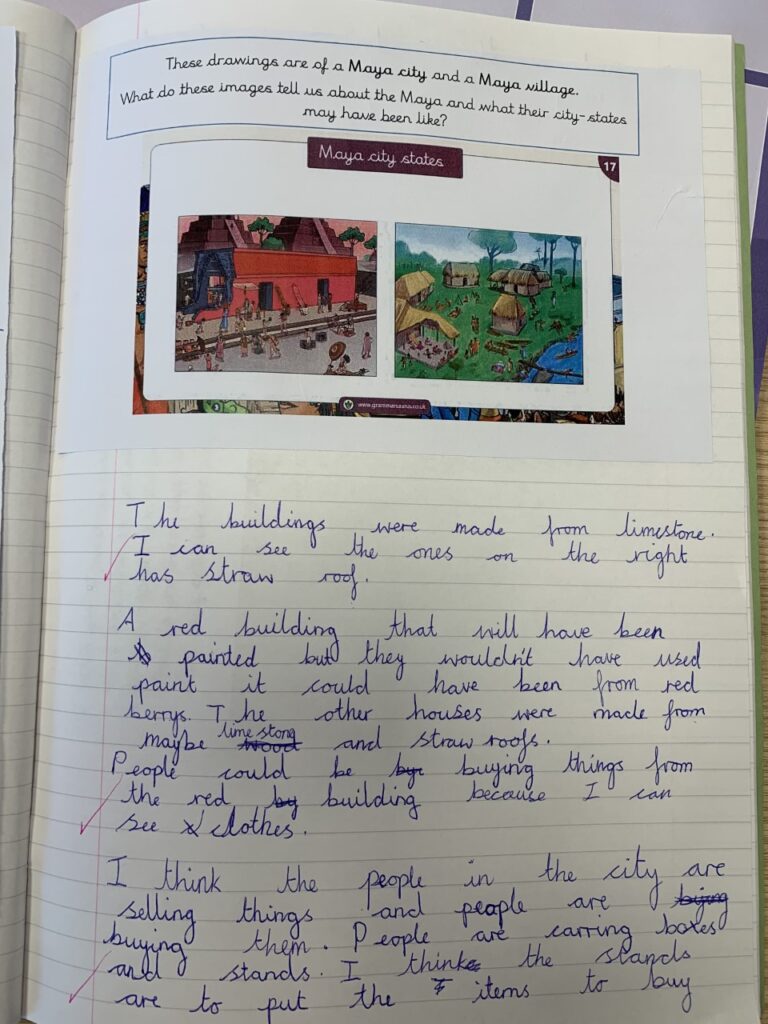 These drawings are of a Maya city and a Maya village.
What do these images tell us about the Maya and what their city-states
may have been like?
Maya city states
17
www.grammarsaurus.co.uk
The buildings were made from limestone.
I can see the ones on the right
has straw roof.
A red building that will have been
painted but they wouldn't have used
paint it could have been from red
berrys. The other houses were made from
lime stong
maybe wood and straw roofs.
People could be buying things from
the red by building because I can
see clothes.
I think the people in the city are
selling things and people are
buying them. People are carring boxes
and stands. I think the stands
are to put the items to buy